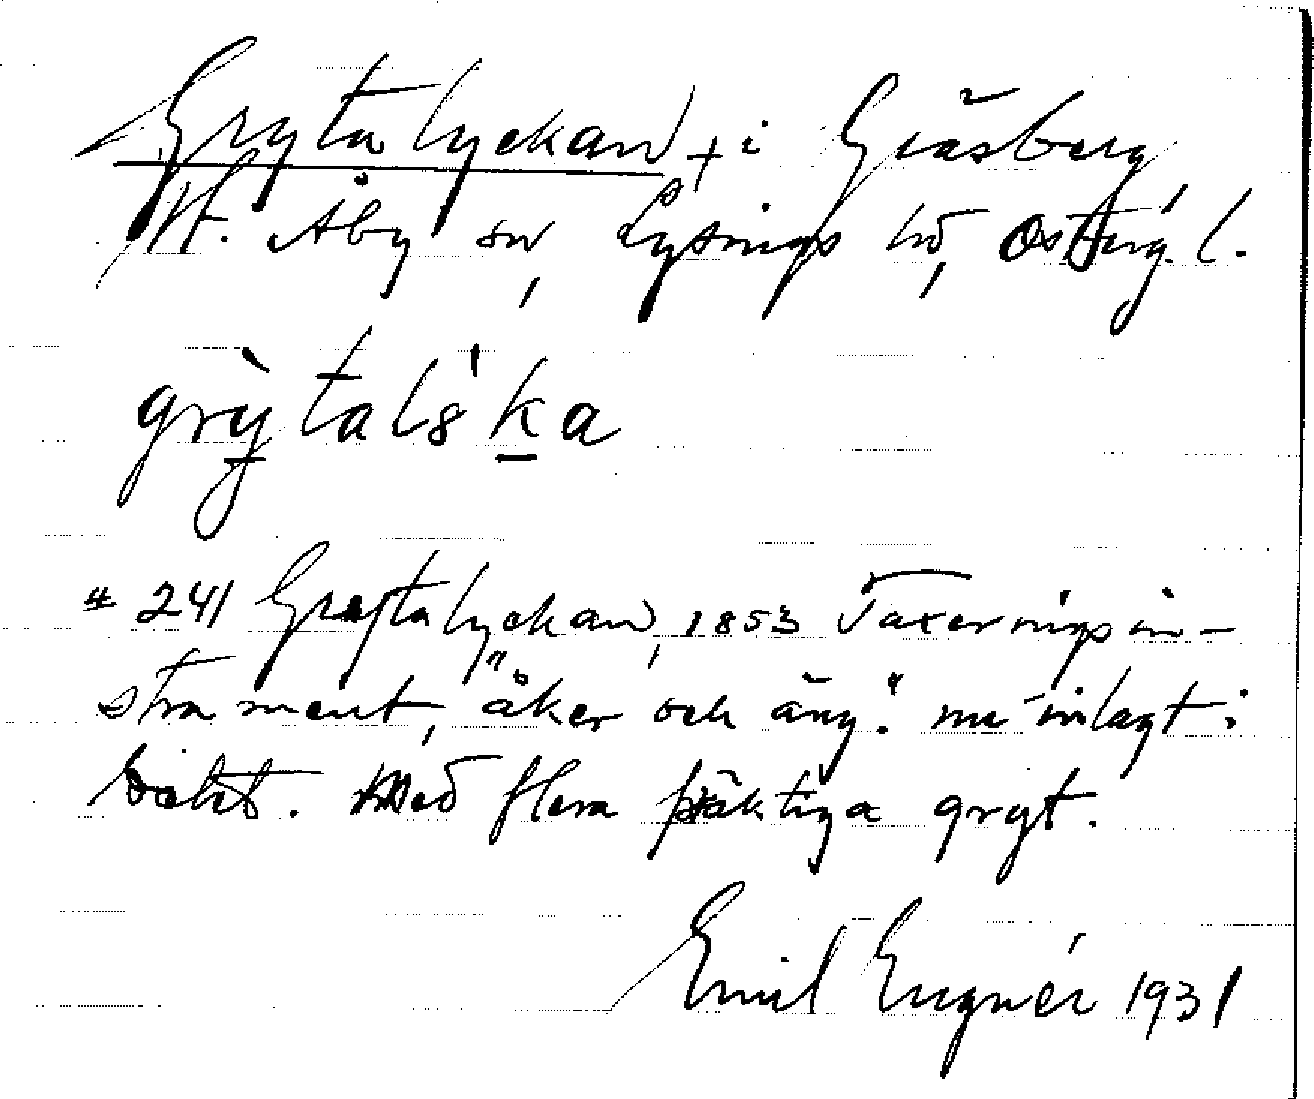 Grytalyckan + i Gräsberg,
V. Åby sn, Lysings hd, Östergl.
grỳtalǝ'ka
# 241 Grytalyckan, 1853 Taxeringsin-
strument, "åker och äng." nu inlagt i
Med flera präktiga gryt.
Emil Engnér 1931